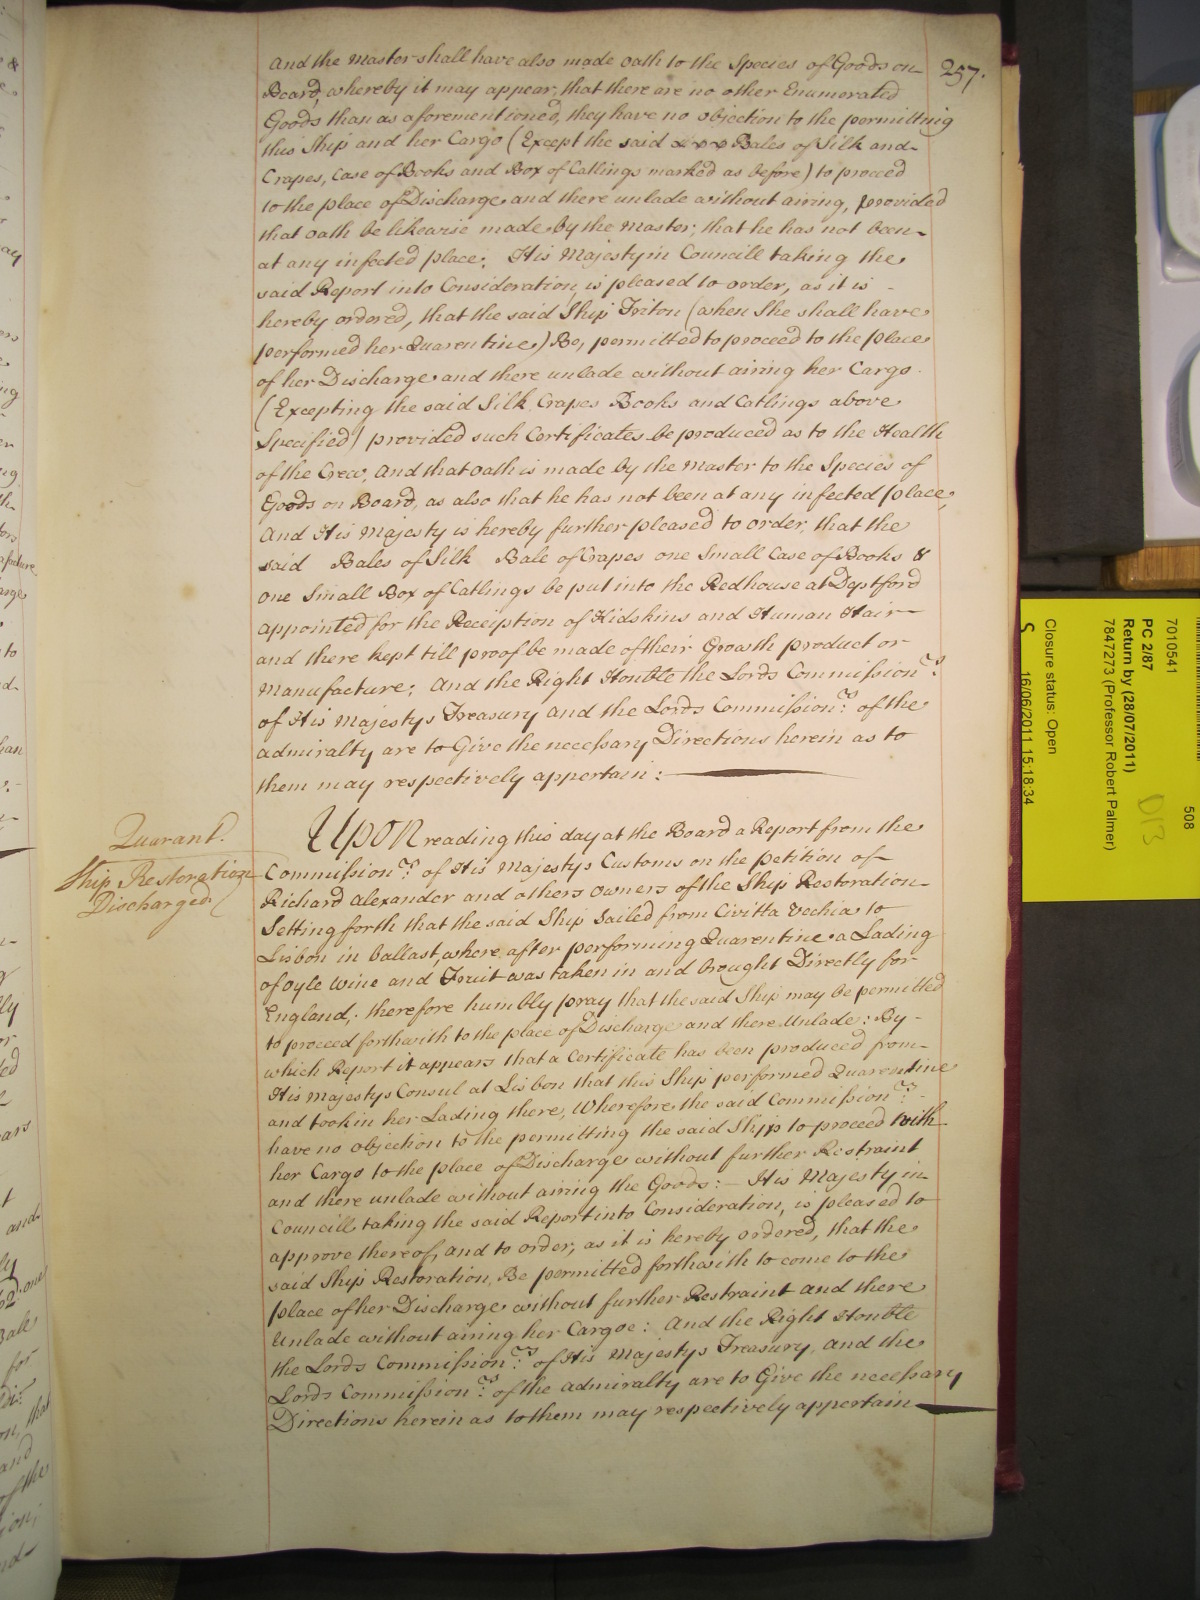 257.
and the Master shall have also made oath to the Species of Goods on
Board, whereby it may appear, that there are no other Enumerated
Goods than as aforementioned, they have no objection to the permitting
this Ship and her Cargo (Except the said Bales of Silk and
Crapes, Case of Books and Box of Catlings marked as before) to proceed
to the place of Discharge and there unlade without airing, provided
that oath be likewise made by the Master; that he has not been
at any infected place; His Majesty in Councill taking the
said Report into Consideration, is pleased to order, as it is
hereby ordered, that the said Ship Triton (when She shall have
performed her Quarentine) Be, permitted to proceed to the place
of her Discharge and there unlade without airing her Cargo
(Excepting the said Silk, Crapes Books and Catlings above
Specified) provided such Certificates be produced as to the Health
of the Crew, And that oath is made by the Master to the Species of
Goods on Board, as also that he has not been at any infected place,
And His Majesty is hereby further pleased to order, that the
said Bales of Silk Bale of Crapes one Small Case of Books &
one Small Box of Catlings be put into the Redhouse at Deptford
appointed for the Reception of Kidskins and Human Hair
and there kept till proof be made of their Growth product or
Manufacture; And the Right Honble the Lords Commission.rs
of His Majestys Treasury and the Lords Commission.rs of the
Admiralty are to Give the necessary Directions herein as to
them may respectively appertain:
Quarant.
Ship Restoration
Discharged
Upon reading this day at the Board a Report from the
Commission.rs of His Majestys Customs on the petition of
Richard Alexander and others Owners of the Ship Restoration
Setting forth that the said Ship Sailed from Civitta Vechia to
Lisbon in ballast, where after performing Quarentine a Lading
of oyle wine and Fruit was taken in and brought Directly for
England; therefore humbly pray that the said Ship may be permitted
to proceed forthwith to the place of Discharge and there Unlade: By
which Report it appears that a Certificate has been produced from
His Majestys Consul at Lisbon that this Ship performed Quarentine
and took in her Lading there, Wherefore the said Commission.rs
have no objection to the permitting the said Ship to proceed with
her Cargo to the place of Discharge without further Restraint
and there unlade without airing the Goods: His Majesty in
Councill taking the said Report into Consideration, is pleased to
approve thereof, and to order, as it is hereby ordered, that the
said Ship Restoration, Be permitted forthwith to come to the
place of her Discharge without further Restraint and there
Unlade without airing her Cargoe: And the Right Honble
the Lords Commission.rs of His Majestys Treasury, and the
Lords Commission.rs of the Admiralty are to Give the necessary
Directions herein as to them may respectively appertain
508
7010541
PC 2/87
Return by (28/07/2011)
7847273 (Professor Robert Palmer)
D13
Closure status: Open
16/06/2011 15:18:34
S